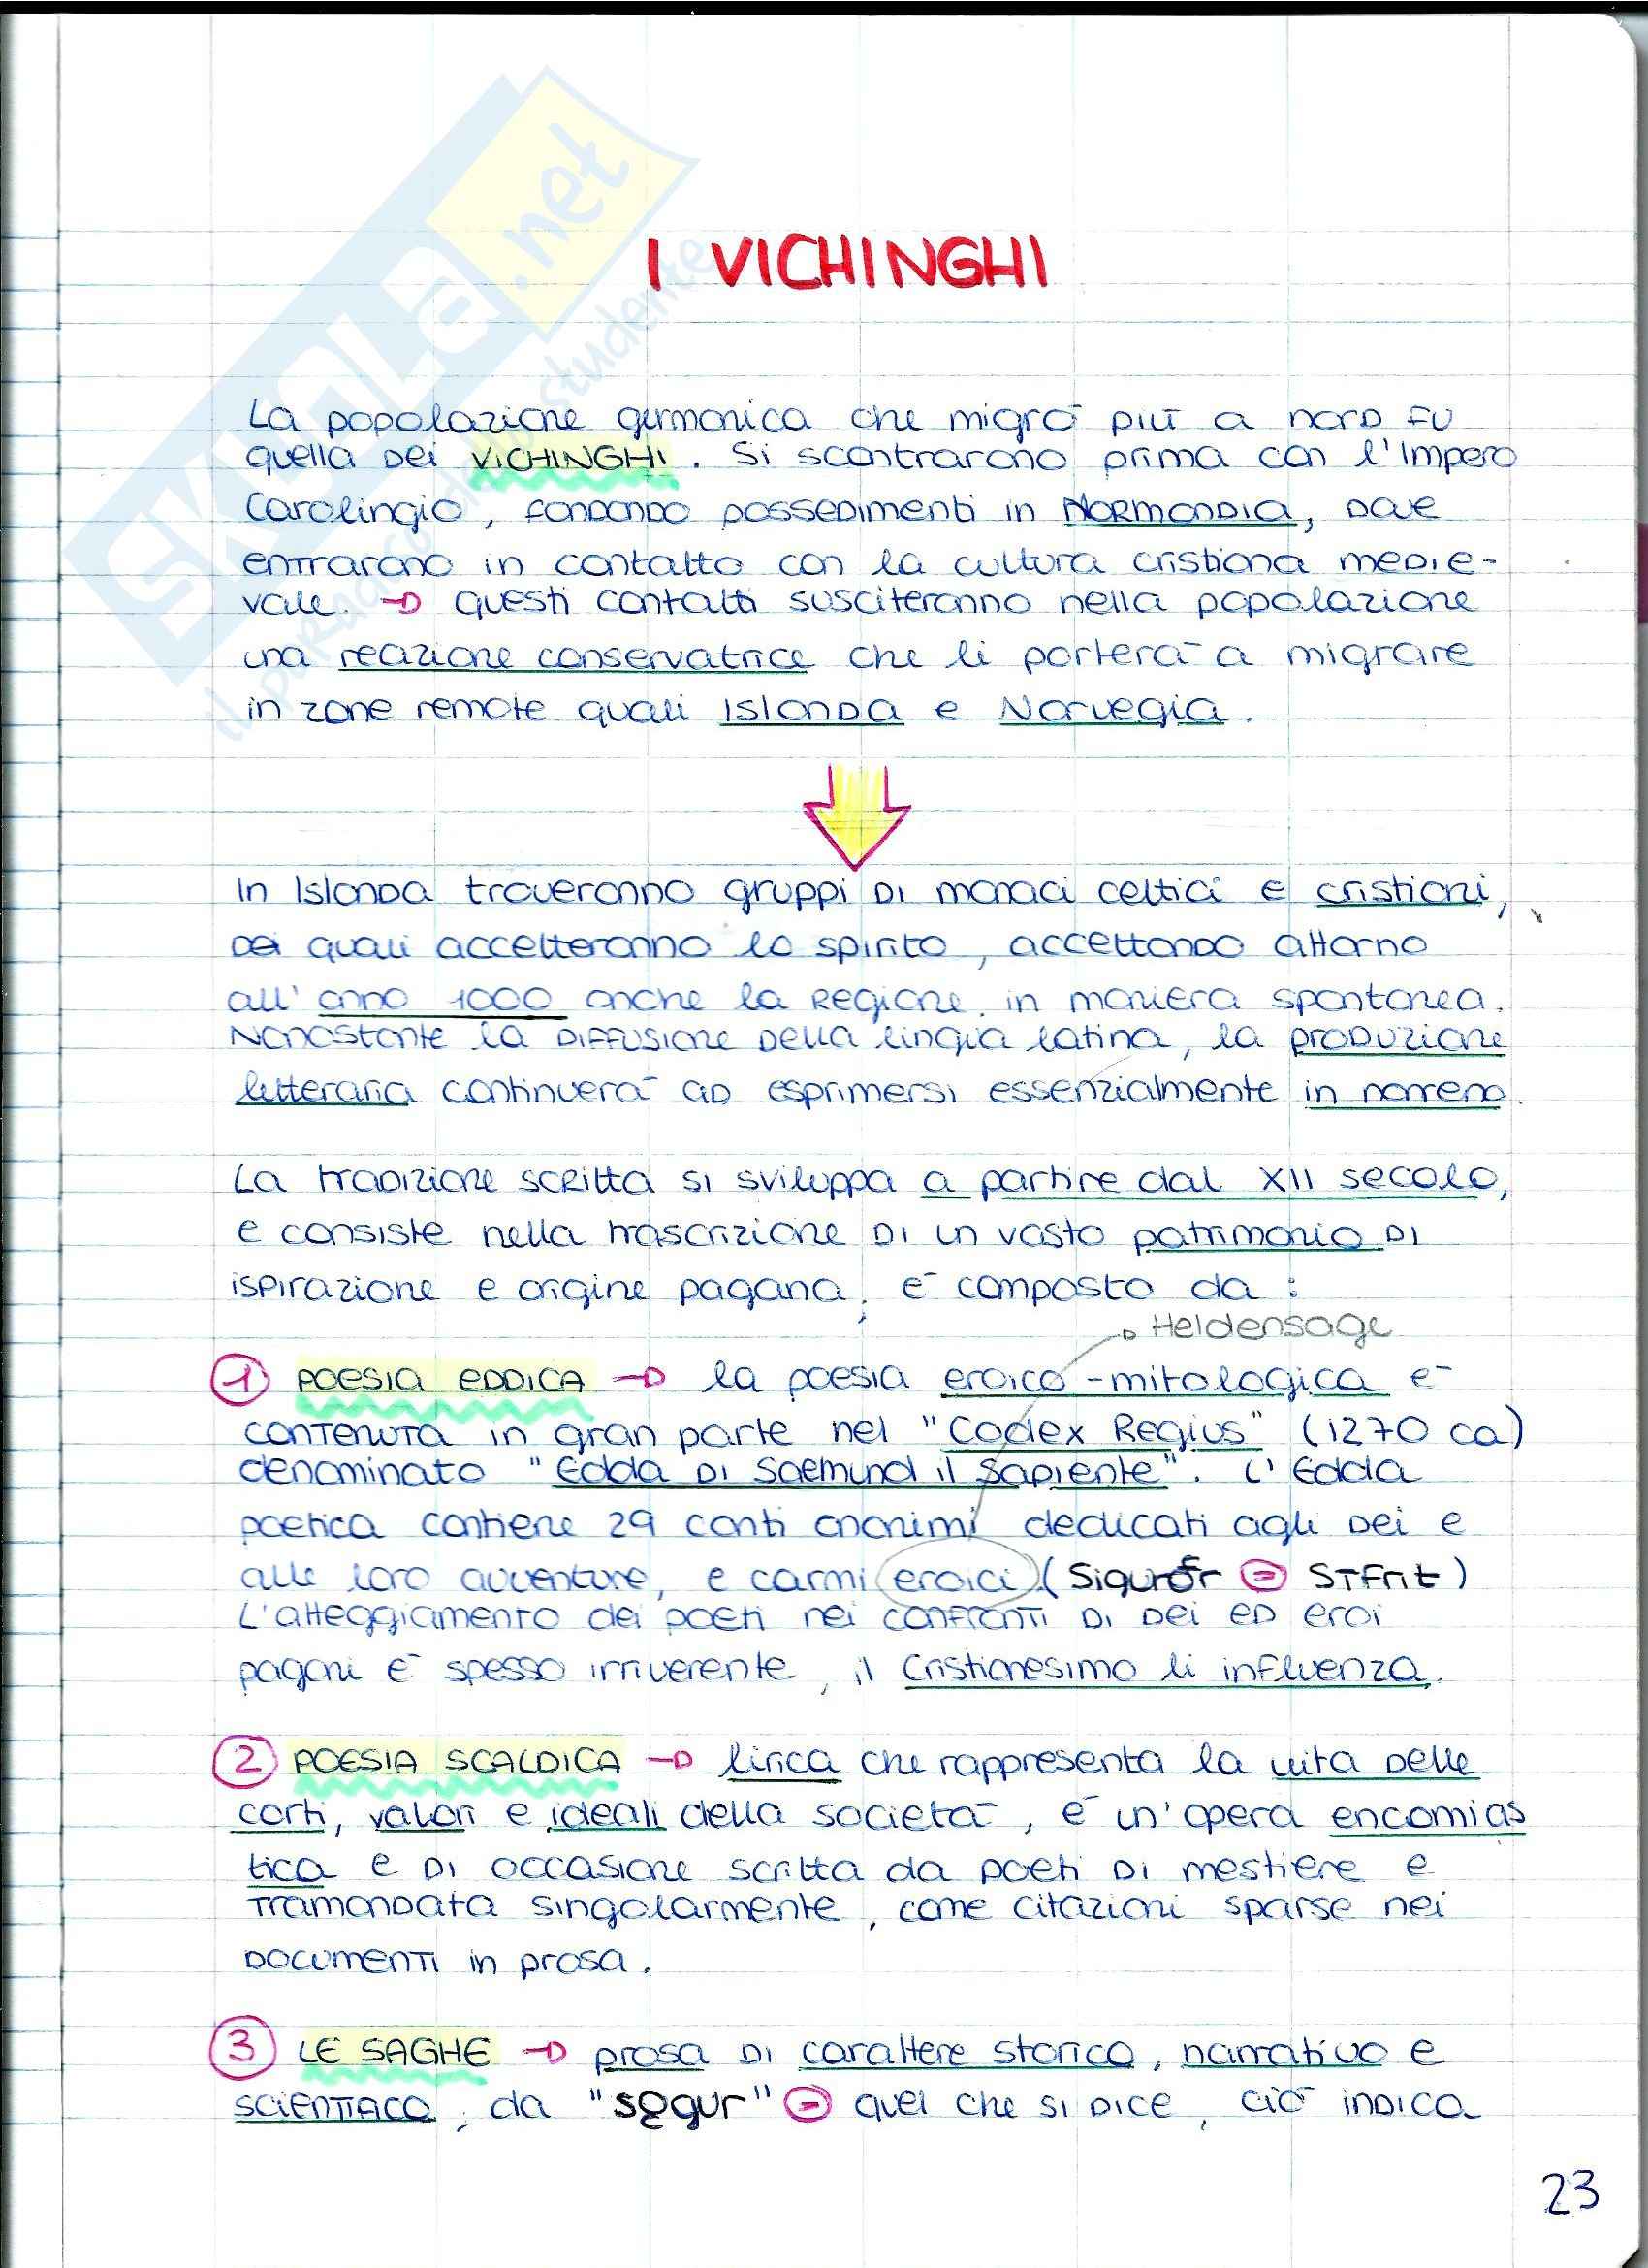 SKUOLA.net
il paradiso dello studente
I VICHINGHI
La popolazione germanica che migrò più a nord fu
quella dei VICHINGHI. Si scontrarono prima con l'Impero
Carolingio, fondando possedimenti in NORMANDIA, dove
entrarono in contatto con la cultura cristiana medie-
vale. → questi contatti susciteranno nella popolazione
una reazione conservatrice che li porterà a migrare
in zone remote quali Islanda e Norvegia.
In Islanda troveranno gruppi di monaci celtici e cristiani,
dei quali accetteranno lo spirito, accettando attorno
all'anno 1000 anche la regione in maniera spontanea.
Nonostante la diffusione della lingua latina, la produzione
letteraria continuerà ad esprimersi essenzialmente in norreno.
La tradizione scritta si sviluppa a partire dal XII secolo,
e consiste nella trascrizione di un vasto patrimonio di
ispirazione e origine pagana; è composto da:
→ Heldensage
1 POESIA EDDICA → la poesia eroico-mitologica è
contenuta in gran parte nel "Codex Regius" (1270 ca)
denominato "Edda di Saemund il Sapiente". L'Edda
poetica contiene 29 canti anonimi dedicati agli dei e
alle loro avventure, e carmi eroici (Sigurðr = Sīfrit)
L'atteggiamento dei poeti nei confronti di dei ed eroi
pagani è spesso irriverente, il Cristianesimo li influenza.
2 POESIA SCALDICA → lirica che rappresenta la vita delle
corti, valori e ideali della società, è un'opera encomias
tica e di occasione scritta da poeti di mestiere e
tramandata singolarmente, come citazioni sparse nei
documenti in prosa.
3 LE SAGHE → prosa di carattere storico, narrativo e
scientifico, da "sǫgur" = quel che si dice, ciò indica
23